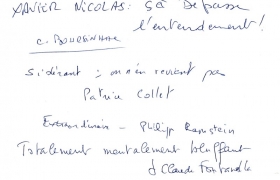 XAVIER NICOLAS: ça Dépasse
l'entendement!
C. BOURGINHAC
Sidérant: on n'en revient pas
Patrice Collet
Extraordinaire - Philipp Bernstein
Totalement mentalement bluffant
Claude Fontanelle